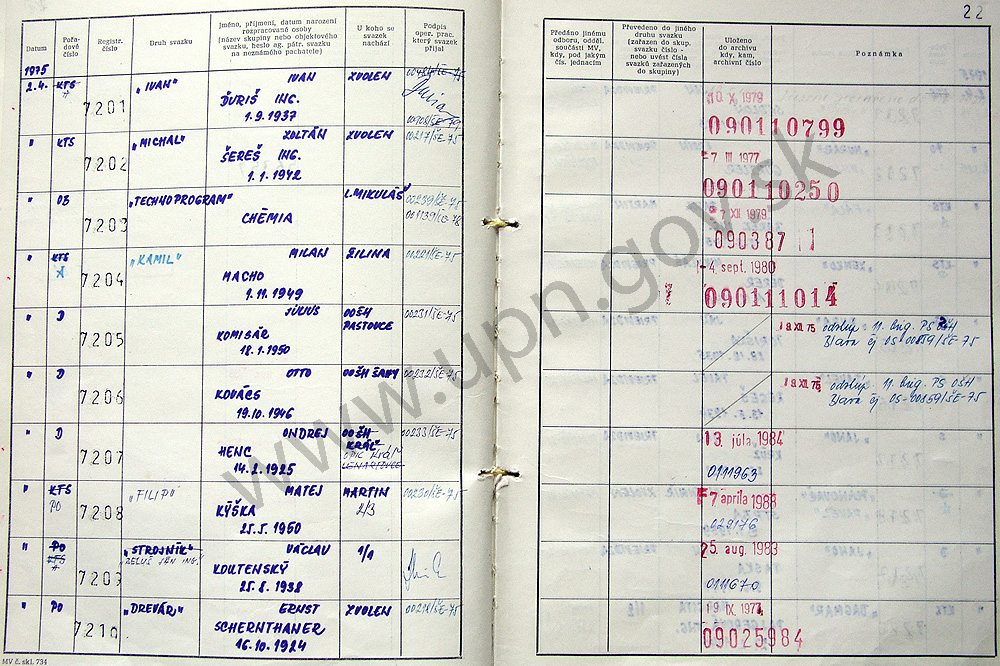 22
Datum
Pořadové číslo
Registr. číslo
Druh svazku
Jméno, příjmení, datum narození
rozpracované osoby
(název skupiny nebo objektového
svazku, heslo ag. pátr. svazku
na neznámého pachatele)
U koho se
svazek
nachází
Podpis
oper. prac.
který svazek
přijal
Předáno jinému
odboru, odděl.
součásti MV,
kdy, pod jakým
čís. jednacím
Převedeno do jiného
druhu svazku
(zařazen do skup.
svazku číslo -
nebo uvést čísla
svazků zařazených
do skupiny)
Uloženo
do archívu
kdy, kam,
archivní číslo
Poznámka
1975
2.4. KTS 7201 „IVAN" IVAN ZVOLEN
ĎURIŠ ING.
1.9.1937
10 X 1979
090110799
" KTS 7202 „MICHAL" ZOLTÁN ZVOLEN 00217/ŠE-75
ŠEREŠ ING.
1.1.1942
-7 III 1977
090110250
" OB 7203 „TECHNOPROGRAM" L. MIKULÁŠ 00239/ŠE-75
CHÉMIA
7 XII 1979
090387
" KTS 7204 „KAMIL" MILAN ŽILINA 00221/ŠE-75
MACHO
1.11.1949
-4 sept. 1980
090111014
" D 7205 JÚLIUS OOŠH 00231/ŠE-75
PASTOVCE
KOMISÁR
18.1.1950
18 XII 75 odstúp. 11. brig. PS OŠH
" D 7206 OTTO OOŠH ŠAHY 00232/ŠE-75
KOVÁCS
19.10.1946
18 XII 75 odstúp. 11. brig. PS OŠH
" D 7207 ONDREJ OOŠH 00233/ŠE-75
KRÁĽ
HENC
LENARTOVCE
14.2.1925
13. júla 1984
0111963
" KTS 7208 „FILIP" MATEJ MARTIN 00230/ŠE-75
PO
KÝŠKA 2/3
25.5.1950
7 apríla 1988
029176
" PO 7209 „STROJNÍK" VÁCLAV 1/1
KTS
KOUTENSKÝ
25.8.1938
25. aug. 1983
0111670
" PO 7210 „DREVÁR" ERNST ZVOLEN 00218/ŠE-75
SCHERNTHANER
16.10.1924
19 IX 1977
09025984
MV č. skl. 734
www.upn.gov.sk